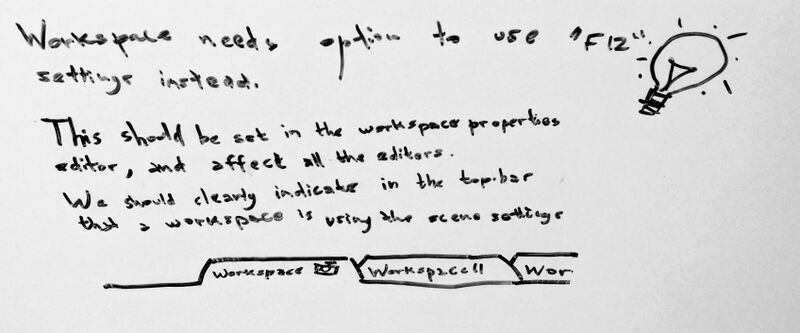 Workspace needs option to use "F12"
settings instead.
This should be set in the workspace properties
editor, and affect all the editors.
We should clearly indicate in the top-bar
that a workspace is using the scene settings
Workspace Workspace 11 Wor